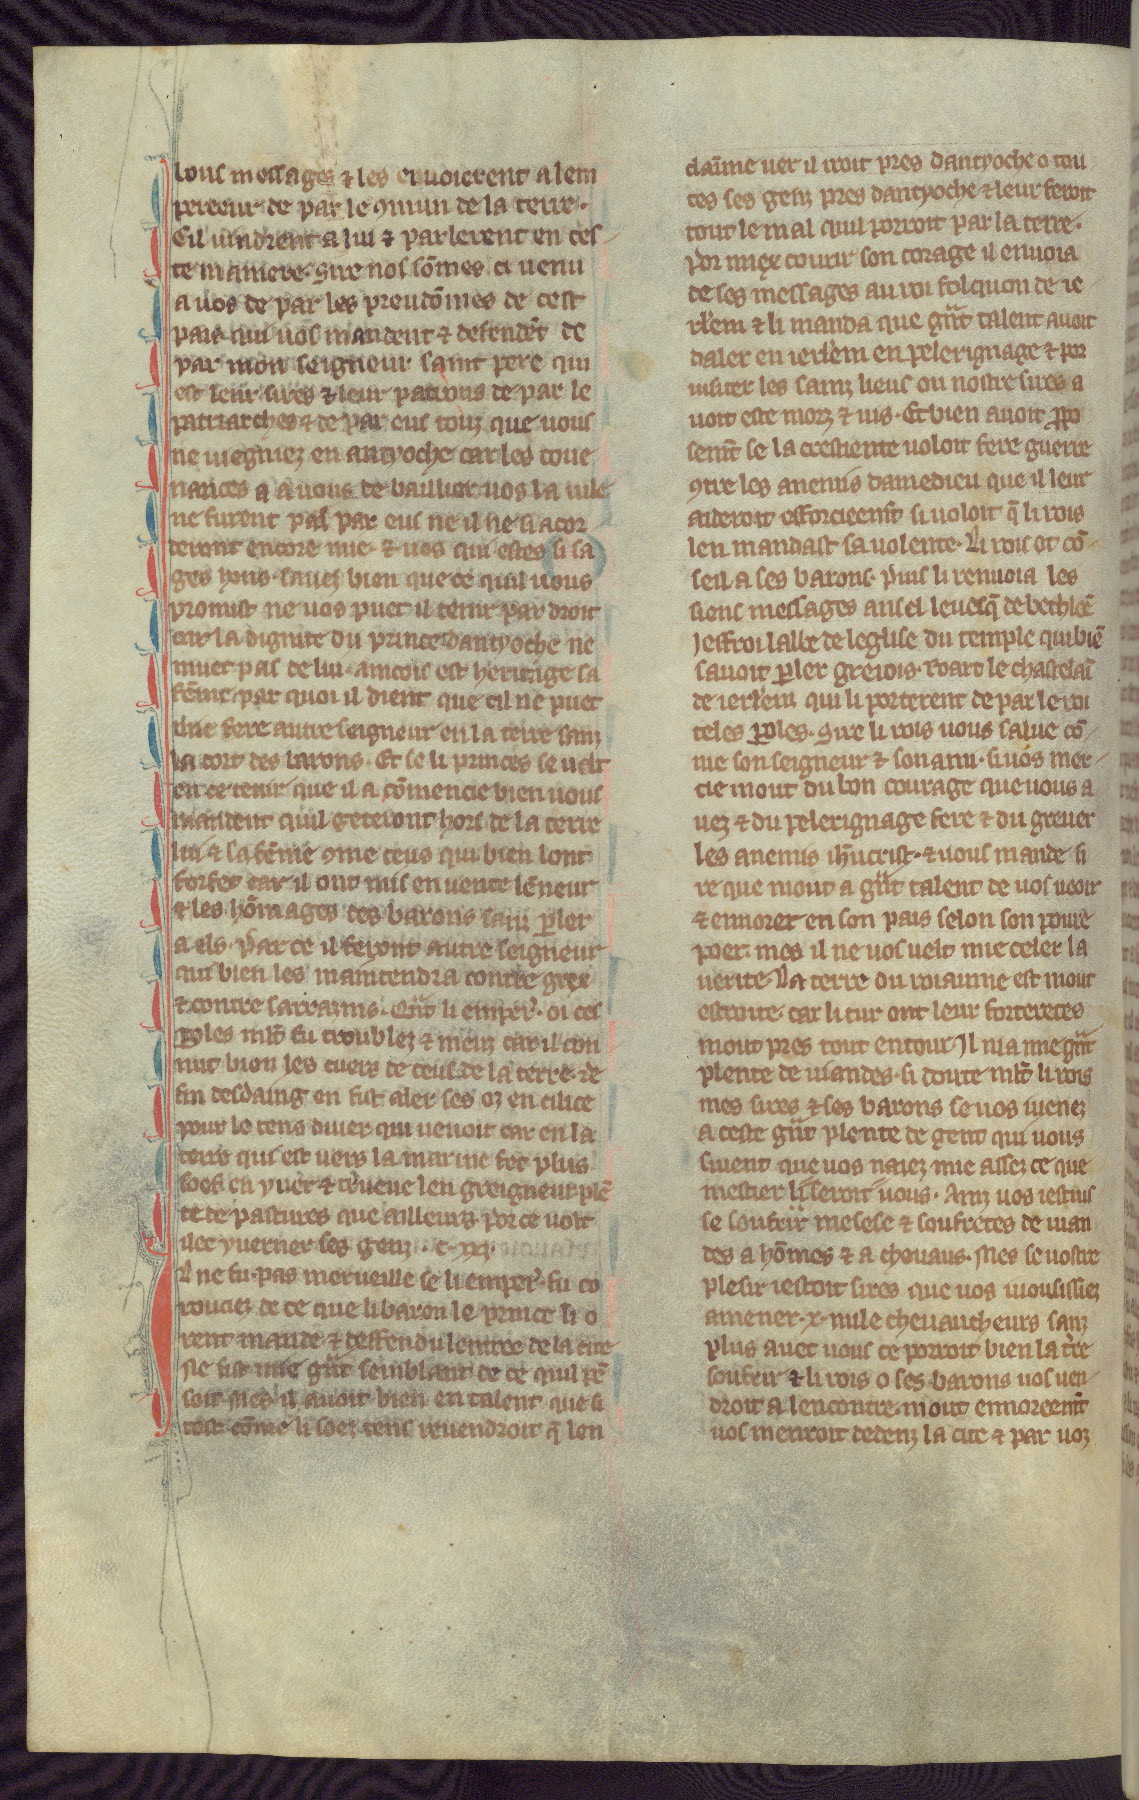 lous messages ⁊ les enuoierent a lem
pereeur de par le ꝯmun de la terre.
Cil uindrent a lui ⁊ parlerent en ces
te maniere. Sire nos sōmes ci uenu
a uos de par les preudōmes de cest
pais qui uos mandent ⁊ defendēt de
par mon seigneur saint pere qui
est leur sires ⁊ leur patrons de par le
patriarches ⁊ de par eus touz que uous
ne uiegniez en antyoche car les coue
nances q̄ a uous de baillier uos la uile
ne furent pas par eus ne il ne si acor
deront encore mie. ⁊ uos qui estes si sa
ges hons sauez bien que ce quil uous
promist ne uos puet il tenir par droit
car la dignite du prince dantyoche ne
muet pas de lui. aincois est heritage sa
fēme. par quoi il dient que cil ne puet
mie fere autre seigneur en la terre sanz
la cort des barons. Et se li princes se uelt
en ce tenir que il a cōmencie bien uous
mandent quil geteront hors de la terre
lui ⁊ sa fēme ꝯme ceus qui bien lont
forfet car il ont mis en uente leneur
⁊ les hōmages des barons sanz ꝑler
a els. Par ce il feront autre seigneur
qui bien les maintendra contre grex
⁊ contre sarrazins. Qn̄t li emper̄. oi ces
ꝑoles ml̄t fu troublez ⁊ meuz car il con
nut bien les cuers de ceus de la terre. de
fin desdaing en fist aler ses oz en cilice
pour le tens diuer qui uenoit car en la
terre qui est uers la marine fet plus
soef en yuer ⁊ treuue len greigneur plē
te de pastures que ailleurs por ce uolt
ilec yuerner ses genz. c. xxj.
Il ne fu pas merueille se li emper̄. fu co
rouciez de ce que li baron le prince li o
rent mande ⁊ deffendu lentree de la cite
Ne fist mie gn̄t semblant de ce quil pē
soit mes il auoit bien en talent que si
tost cōme li soez tens reuendroit q̄ len
claime uer il iroit pres dantyoche o tou
tes ses genz pres dantyoche ⁊ leur feroit
tout le mal quil porroit par la terre.
Por miex couurir son corage il enuoia
de ses messages au roi folquon de ie
rl̄em ⁊ li manda que gn̄t talent auoit
daler en ierl̄em en pelerignage ⁊ por
uisiter les sainz lieus ou nostre sires a
uoit este morz ⁊ uis. Et bien auoit ꝓpo
sem̄t se la crestiente uoloit fere guerre
ꝯtre les anemis damedieu que il leur
aideroit efforcieem̄t si uoloit q̄ li rois
len mandast sa uolente. Li rois ot cō
seil a ses barons. puis li renuoia les
siens messages ansel leuesq̄ de bethleē
Jeffroi labbe de leglise du temple qui biē
sauoit ꝑler grezois. Roart le chastelai
de ierl̄em qui li porterent de par le roi
teles ꝑoles. Sire li rois uous salue cō
me son seigneur ⁊ son ami. si uos mer
cie mout du bon courage que uous a
uez ⁊ du pelerignage fere ⁊ du greuer
les anemis ih̄ucrist. ⁊ uous mande si
re que mout a gn̄t talent de uos ueoir
⁊ ennorer en son pais selon son poure
poer. mes il ne uos uelt mie celer la
uerite. La terre du roiaume est mout
estroite. car li tur ont leur forteretes
mout pres tout entour. Jl ni a mie gn̄t
plente de uiandes. si doute ml̄t li rois
mes sires ⁊ ses barons se uos iuenez
a ceste gn̄t plente de gent qui uous
siuent que uos naiez mie assez ce que
mestier li seroit uous. Ainz uos iestuis
se soufrir mesese ⁊ soufretes de uian
des a hōmes ⁊ a cheuaus. Mes se uostre
plesir iestoit sires que uos iuousissiez
amener .x. mile cheuaucheurs sanz
plus auec uous ce porroit bien la tr̄re
soufrir ⁊ li rois o ses barons uos uen
droit a lencontre mout ennoreem̄t
uos menroit dedenz la cite ⁊ par uoz